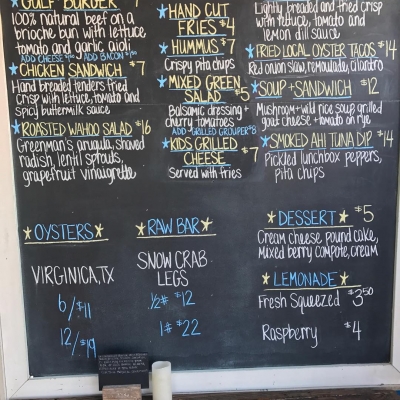 GULF BURGER 7
100% natural beef on a
brioche bun with lettuce,
tomato and garlic aioli
ADD CHEESE ADD BACON
CHICKEN SANDWICH $7
Hand breaded tenders fried
crisp with lettuce, tomato and
spicy buttermilk sauce
ROASTED WAHOO SALAD $16
Greenman's arugula, shaved
radish, lentil sprouts,
grapefruit vinaigrette
HAND CUT
FRIES $4
HUMMUS $7
Crispy pita chips
MIXED GREEN
SALAD $5
Balsamic dressing +
cherry tomatoes
ADD GRILLED GROUPER $8
KIDS GRILLED
CHEESE $7
Served with fries
Lightly breaded and fried crisp
with lettuce, tomato and
lemon dill sauce
FRIED LOCAL OYSTER TACOS $14
Red onion slaw, remoulade, cilantro
SOUP + SANDWICH $12
Mushroom + wild rice soup, grilled
goat cheese + tomato on rye
SMOKED AHI TUNA DIP $14
Pickled lunchbox peppers,
pita chips
OYSTERS
VIRGINICA, TX
6/$11
12/$19
RAW BAR
SNOW CRAB
LEGS
½# $12
1# $22
DESSERT $5
Cream cheese pound cake,
mixed berry compote, cream
LEMONADE
Fresh Squeezed $3.50
Raspberry $4